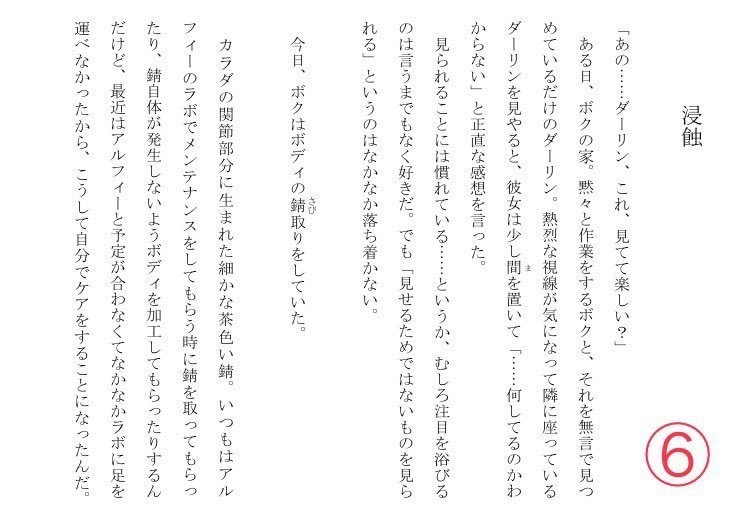 浸蝕
「あの……ダーリン、これ、見てて楽しい？」
　ある日、ボクの家。黙々と作業をするボクと、それを無言で見つ
めているだけのダーリン。熱烈な視線が気になって隣に座っている
ダーリンを見やると、彼女は少し間ま を置いて「……何してるのかわ
からない」と正直な感想を言った。
　見られることには慣れている……というか、むしろ注目を浴びる
のは言うまでもなく好きだ。でも「見せるためではないものを見ら
れる」というのはなかなか落ち着かない。
　今日、ボクはボディの錆さび取りをしていた。
　カラダの関節部分に生まれた細かな茶色い錆。いつもはアル
フィーのラボでメンテナンスをしてもらう時に錆を取ってもらっ
たり、錆自体が発生しないようボディを加工してもらったりするん
だけど、最近はアルフィーと予定が合わなくてなかなかラボに足を
運べなかったから、こうして自分でケアをすることになったんだ。
⑥